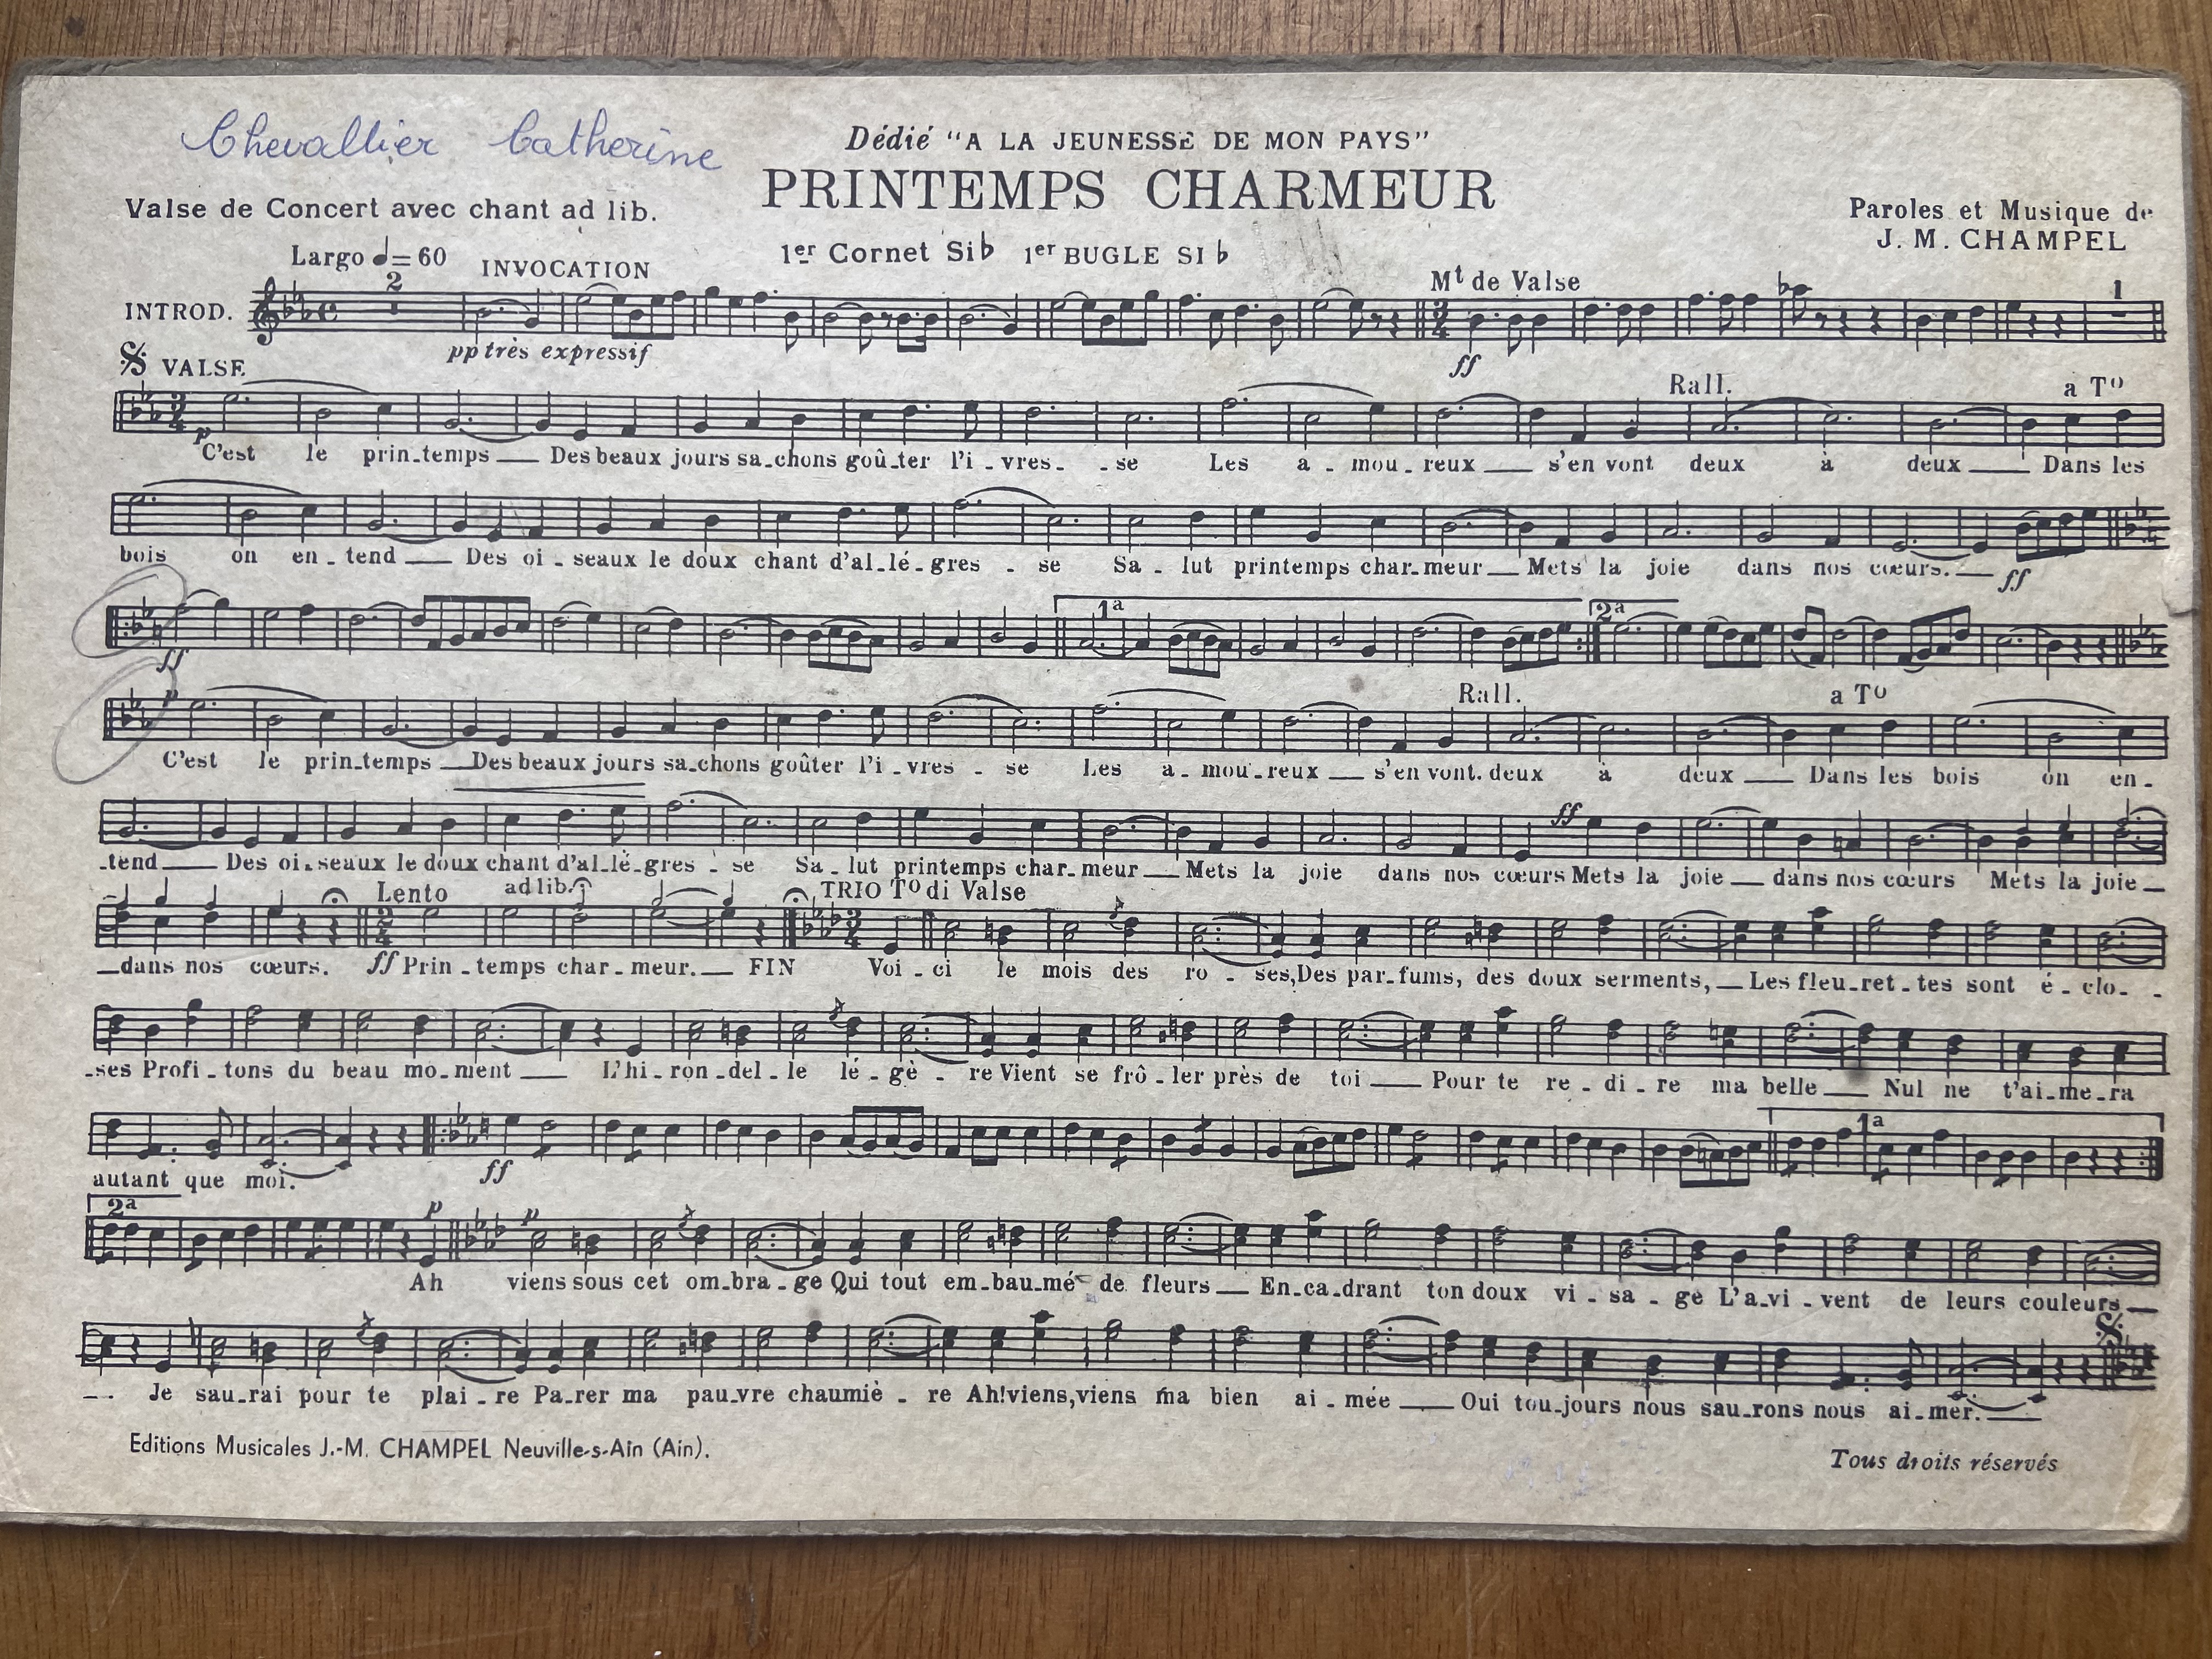 Chevallier Catherine
Dédié "A LA JEUNESSE DE MON PAYS"
PRINTEMPS CHARMEUR
Valse de Concert avec chant ad lib.
Paroles et Musique de
J. M. CHAMPEL
1er Cornet Si♭ 1er BUGLE SI♭
Largo ♩= 60 INVOCATION
Mt de Valse
2
1
INTROD.
pp très expressif
ff
VALSE
Rall. a To
p
C'est le prin_temps ___ Des beaux jours sa_chons goû_ter l'i_vres_ _se Les a_mou_reux ___ s'en vont deux à deux ___ Dans les
bois on en_tend ___ Des oi_seaux le doux chant d'al_lé_gres_se Sa_lut printemps char_meur ___ Mets la joie dans nos cœurs. ___ ff
1a 2a
ff
p
Rall. a To
C'est le prin_temps ___ Des beaux jours sa_chons goûter l'i_vres_se Les a_mou_reux ___ s'en vont. deux à deux ___ Dans les bois on en_
ff
_tend ___ Des oi_seaux le doux chant d'al_lé_gres_se Sa_lut printemps char_meur ___ Mets la joie dans nos cœurs Mets la joie ___ dans nos cœurs Mets la joie ___
Lento ad lib. TRIO To di Valse
___ dans nos cœurs. ff Prin_temps char_meur. ___ FIN Voi_ci le mois des ro_ses, Des par_fums, des doux serments, ___ Les fleu_ret_tes sont é_clo_ _
_ses Profi_tons du beau mo_ment ___ L'hi_ron_del_le lé_gè_re Vient se frô_ler près de toi ___ Pour te re_di_re ma belle ___ Nul ne t'ai_me_ra
1a
ff
autant que moi. ___
2a p p
Ah viens sous cet om_bra_ge Qui tout em_bau_mé de fleurs ___ En_ca_drant ton doux vi_sa_ge L'a_vi_vent de leurs couleurs ___
___ Je sau_rai pour te plai_re Pa_rer ma pau_vre chaumiè_re Ah! viens, viens ma bien ai_mée ___ Oui tou_jours nous sau_rons nous ai_mer. ___
Editions Musicales J.-M. CHAMPEL Neuville-s-Ain (Ain).
Tous droits réservés